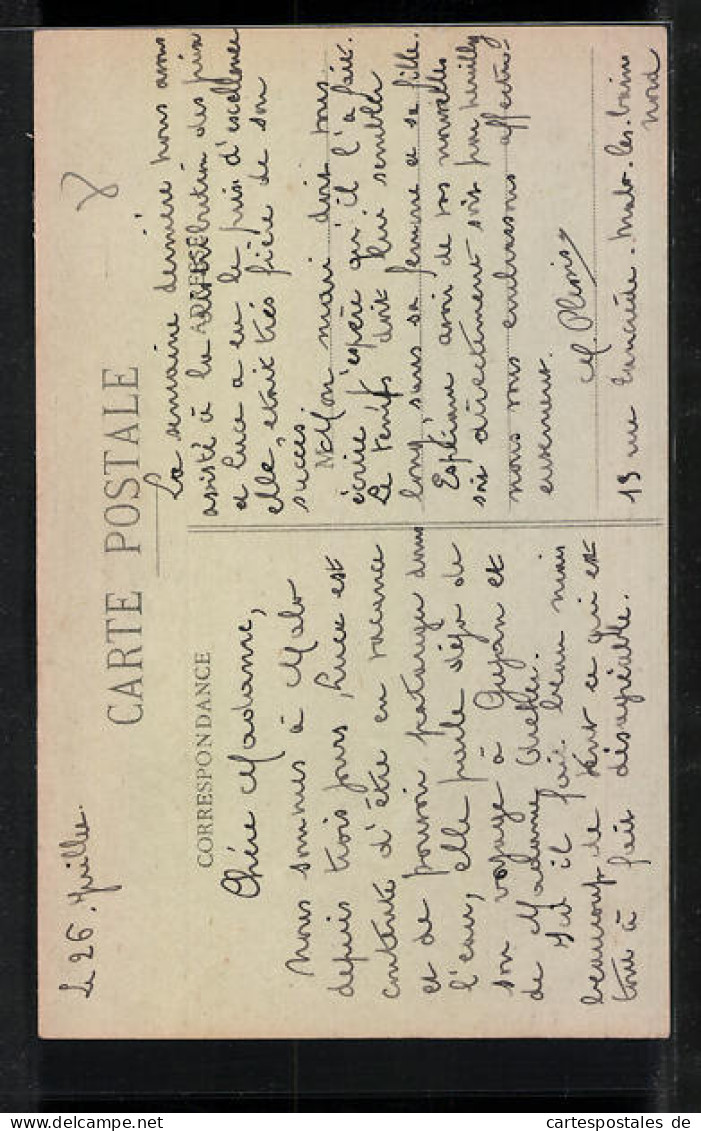 Le 26 Juillet.
CARTE POSTALE
CORRESPONDANCE
ADRESSE
Chère Madame,
Nous sommes à Malo
depuis trois jours, Luce est
contente d'être en vacance
et de pouvoir patauger dans
l'eau, elle parle déjà de
son voyage à Gujan et
de Madame
Ici il fait beau mais
beaucoup de vent ce qui est
tout à fait désagréable.
La semaine dernière nous avons
assisté à la distribution des prix
et Luce a eu le prix d'excellence
elle, était très fière de son
succès.
M
Mon mari doit vous
écrire j'espère qu'il l'a fait.
Le temps doit lui sembler
long, sans sa femme et sa fille.
Espérons avoir de vos nouvelles
soit directement soit par
nous vous embrassons affectu-
eusement.
M. Plessis
13 rue Tancrède. Malo-les-bains
Nord
8
www.delcampe.net
cartespostales de